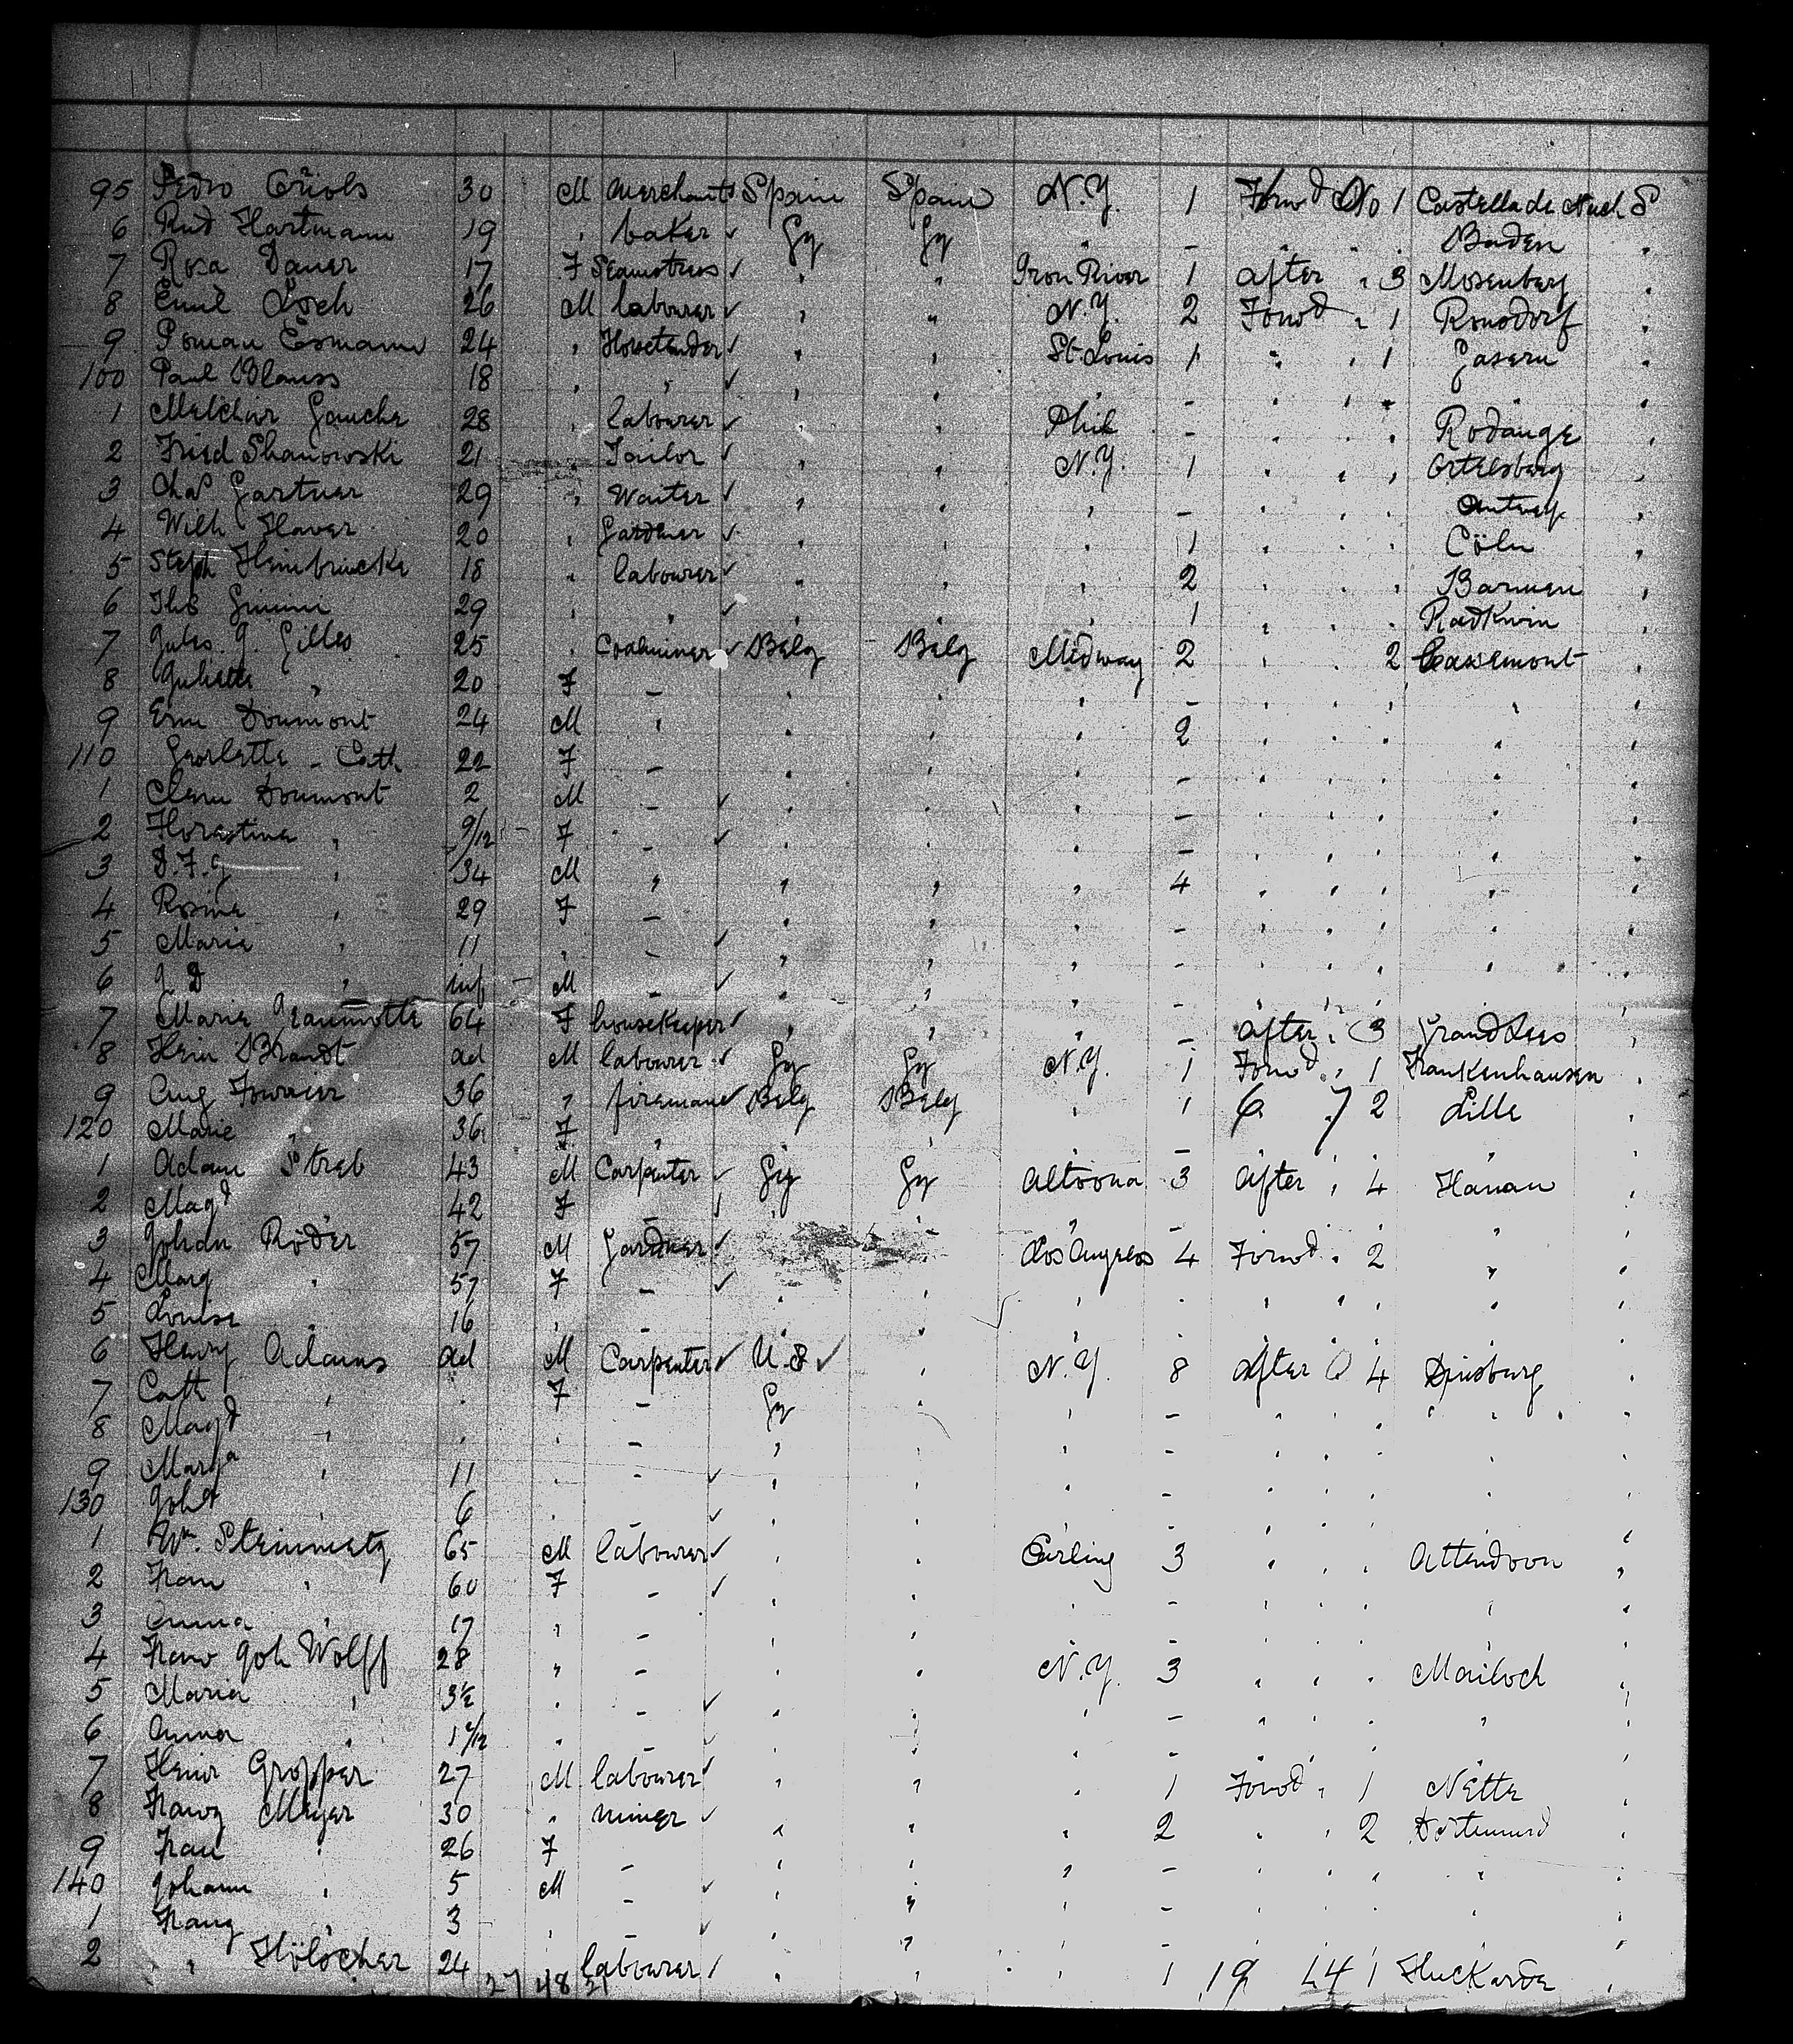 95 Pedro Criols 30 M merchant Spain Spain N.Y. 1 Forwd No 1 Castellade Nuch S
6 Rud Hartmann 19 " baker Gy Gy " - " " " Baden "
7 Rosa Dauer 17 F Seamstress " " Iron River 1 after " 3 Mosenberg "
8 Emil Loch 26 M labourer " " N.Y. 2 Forwd " 1 Ronsdorf "
9 Roman Esmann 24 " " " St. Louis 1 " " 1 "
100 Paul 18 " " " " " - " " " " "
1 Melchior Gauche 28 " labourer " " Phil - " " " Rodange "
2 Fried Shanowski 21 " Tailor " " N.Y. 1 " " " Ortelsburg "
3 Chas Gartner 29 " Waiter " " " - " " " Antwerp "
4 Wilh Haver 20 " Gardner " " " 1 " " " Cöln "
5 Steph Heinbrucke 18 " labourer " " " 2 " " " Barmen "
6 29 " " " " " 1 " " " "
7 Jules J. Gilles 25 " Coalminer Belg Belg Midway 2 " " 2 "
8 Juliette " 20 F - " " " - " " " " "
9 Erm Doumont 24 M " " " " 2 " " " " "
110 Georlette - Cath 22 F - " " " - " " " " "
1 Clem Doumont 2 M - " " " - " " " " "
2 Florestine " 9/12 F - " " " - " " " " "
3 D.F.J " 34 M " " " " 4 " " " " "
4 Rosine " 29 F - " " " - " " " " "
5 Maria " 11 " - " " " - " " " " "
6 J D " inf M - " " " - " " " " "
7 Maria 64 F housekeeper " " " - after " 3 Grand Lees "
8 Hein Brandt ad M labourer Gy Gy N.Y. 1 Forwd " 1 Frankenhausen "
9 Aug Fourrier 36 " fireman Belg Belg " 1 6 7 2 Lille "
120 Marie " 36 F " " " " - " " " " "
1 Adam Streb 43 M Carpenter Gy Gy Altoona 3 After " 4 Hanau "
2 Magd " 42 F - " " " - " " " " "
3 Johan Röder 57 M Gardner " " Los Angeles 4 Forwd " 2 " "
4 Marg " 57 F - " " " " " " " " "
5 Louise " 16 " - " " " " " " " " "
6 Henry Adams ad M Carpenter U.S " N.Y. 8 After 4 Duisburg "
7 Cath " " F - Gy " " - " " " " "
8 Magd " " " - " " " - " " " " "
9 Marga " 11 " - " " " - " " " " "
130 " 6 " - " " " - " " " " "
1 Wm. Steinmetz 65 M labourer " " 3 " " " Attendorn "
2 Frau " 60 F - " " " - " " " " "
3 Emma " 17 " - " " " - " " " " "
4 Frau Joh Wolff 28 " - " " N.Y. 3 " " " "
5 Maria " 3½ " - " " " - " " " " "
6 Anna " " - " " " - " " " " "
7 Heinr Gropper 27 M labourer " " " 1 Forwd " 1 Nette "
8 Franz Meyer 30 " miner " " " 2 " " 2 Dortmund "
9 Frau " 26 F - " " " - " " " " "
140 Johann " 5 M - " " " - " " " " "
1 Franz " 3 " - " " " - " " " " "
2 " Hölscher 24 labourer " " " 1 19 44 1 Huckarde "
27 48 21